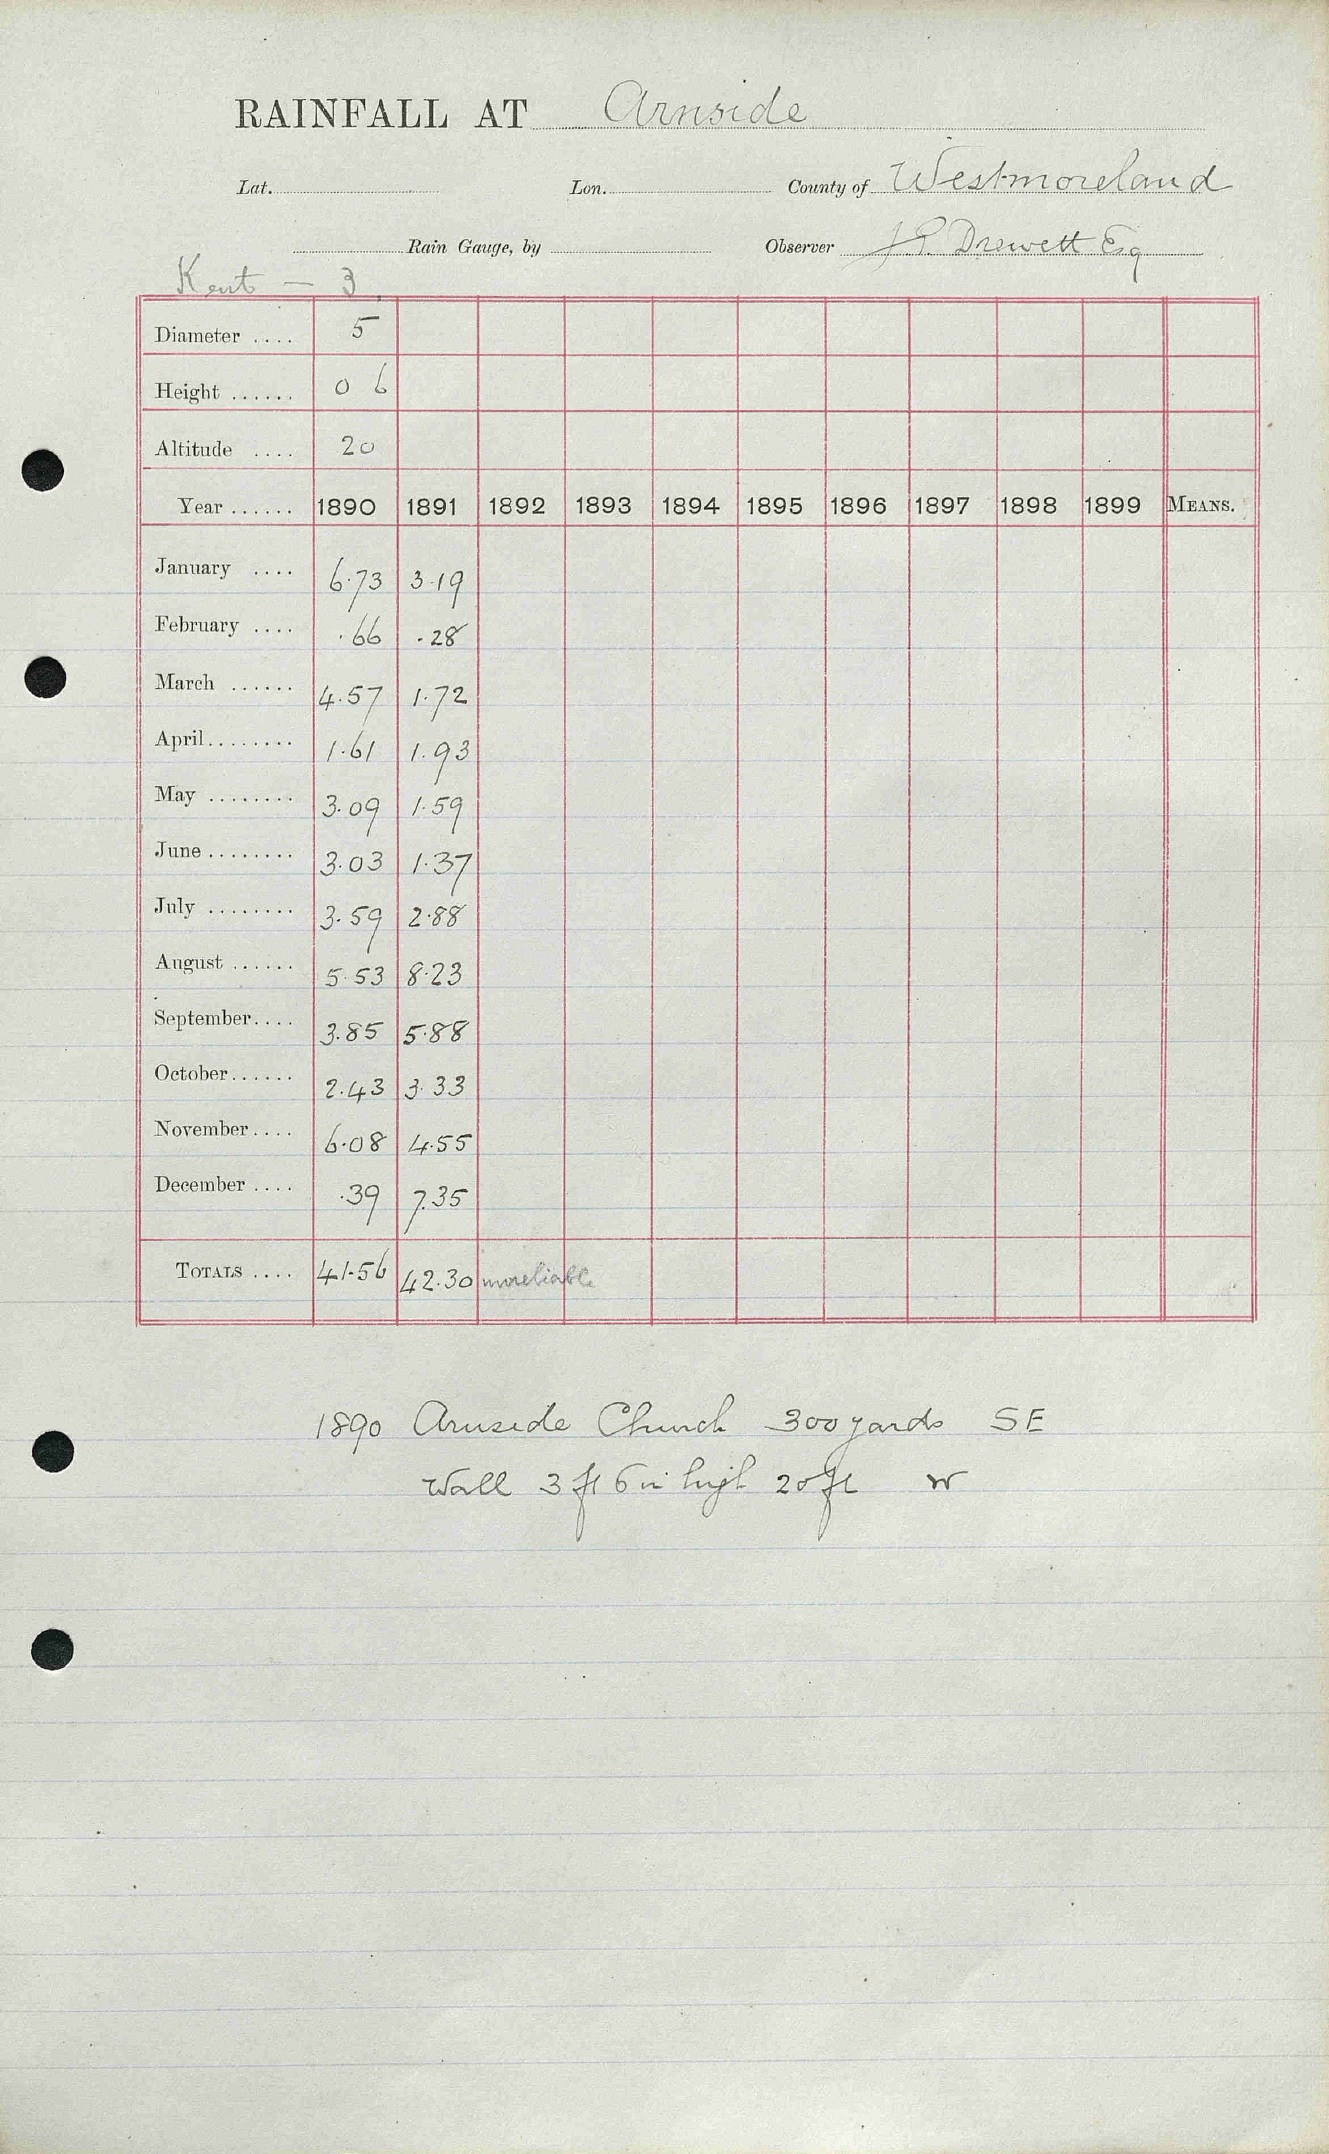 RAINFALL AT Arnside
Lat. Lon. County of Westmoreland
Rain Gauge, by Observer Drewett Esq
Kent — 3
Diameter .... 5
Height ...... 0 6
Altitude .... 20
Year ...... 1890 1891 1892 1893 1894 1895 1896 1897 1898 1899 MEANS.
January .... 6.73 3.19
February .... .66 .28
March ...... 4.57 1.72
April........ 1.61 1.93
May ........ 3.09 1.59
June ........ 3.03 1.37
July ........ 3.59 2.88
August ...... 5.53 8.23
September.... 3.85 5.88
October...... 2.43 3.33
November.... 6.08 4.55
December .... .39 7.35
TOTALS .... 41.56 42.30 unreliable
1890 Arnside Church 300 yards SE
Wall 3 ft 6 in high 20 ft W